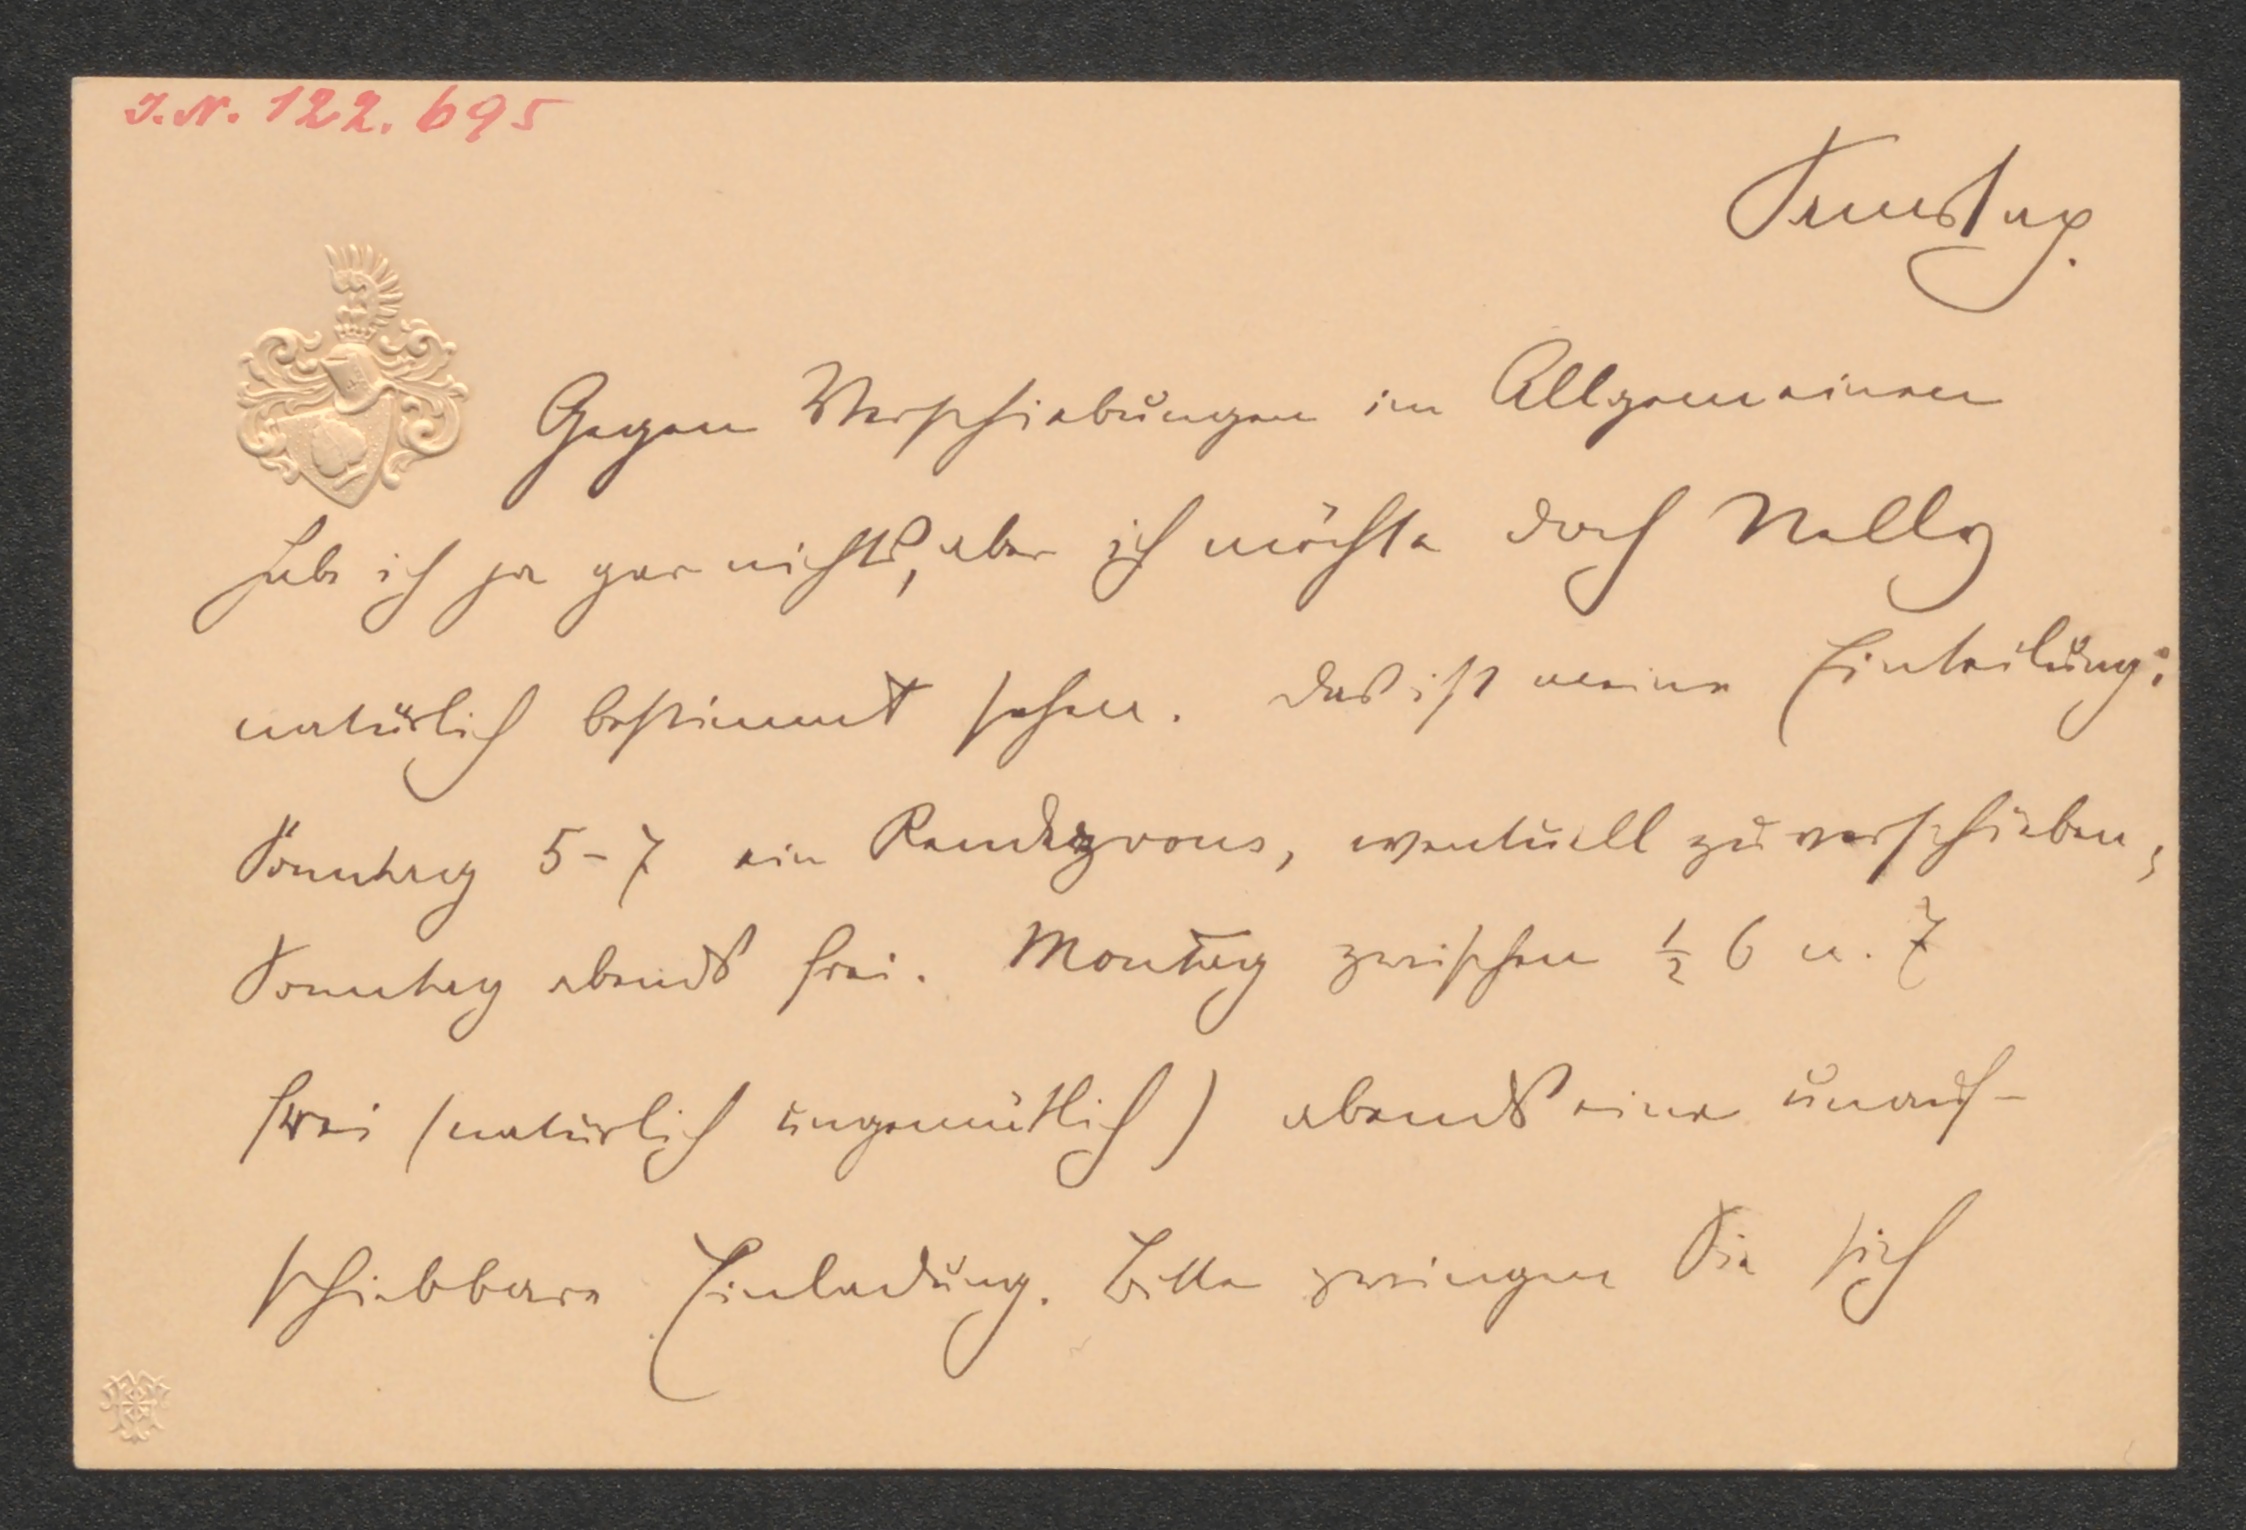 I.N. 122.695
Samstag.
Gegen Verschiebungen im Allgemeinen
hab ich ja gar nichts, aber ich möchte doch Nelly
natürlich bestimmt sehen. Das ist meine Einteilung:
Sonntag 5-7 ein Rendezvous, eventuell zu verschieben,
Sonntag abends frei. Montag zwischen ½ 6 u. 7
frei (natürlich ungemütlich) abends eine unauf-
schiebbare Einladung. Bitte zwingen Sie sich